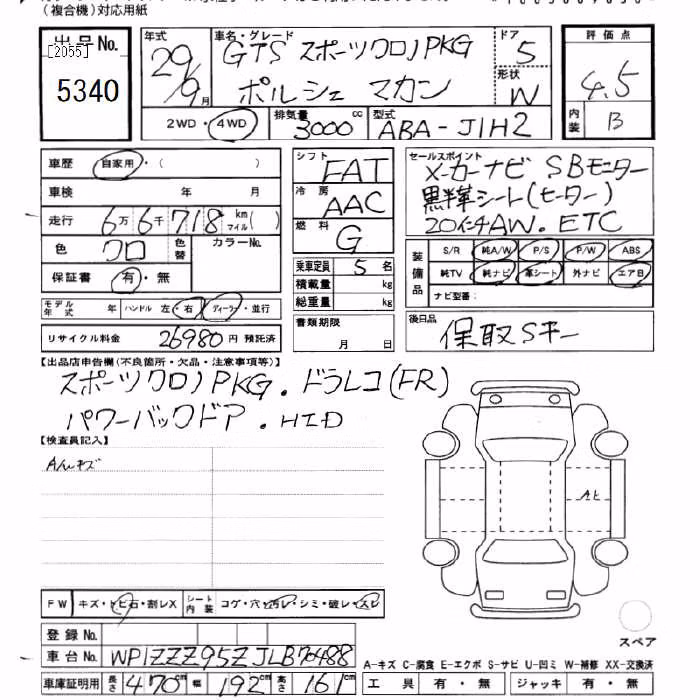 （複合機）対応用紙
出品No.
[2055]
5340
年式
29/9月
車名・グレード
GTS スポーツクロノPKG
ポルシェ マカン
ドア
5
形状
W
評価点
4.5
内装
B
2WD・4WD
排気量
3000cc
型式
ABA-J1H2
車歴
自家用・（ ）
車検 年 月
走行 6万6千718 km マイル( )
色 クロ 色替 カラーNo.
保証書 有・無
モデル年式 年 ハンドル 左・右 ディーラー・並行
リサイクル料金 26980円 預託済
シフト FAT
冷房 AAC
燃料 G
乗車定員 5名
積載量 kg
総重量 kg
書類期限
月 日
セールスポイント
メーカーナビ SBモニター
黒半革シート(ヒーター)
20インチAW. ETC
装備品
S/R 純A/W P/S P/W ABS
純TV 純ナビ 革シート 外ナビ エア日
ナビ型番：
後日品
保取Sキー
【出品店申告欄(不良箇所・欠品・注意事項等)】
スポーツクロノPKG. ドラレコ(FR)
パワーバックドア. HID
【検査員記入】
Aんキズ
Aヒ
FW キズ・トビ石・割レX シート内装 コゲ・穴・汚レ・シミ・破レ・スレ
スペア
登録No.
車台No. WP1ZZZ95ZJLB70488
車庫証明用 長さ 470cm 幅 192cm 高さ 161cm
A-キズ C-腐食 E-エクボ S-サビ U-凹ミ W-補修 XX-交換済
工具 有・無 ジャッキ 有・無